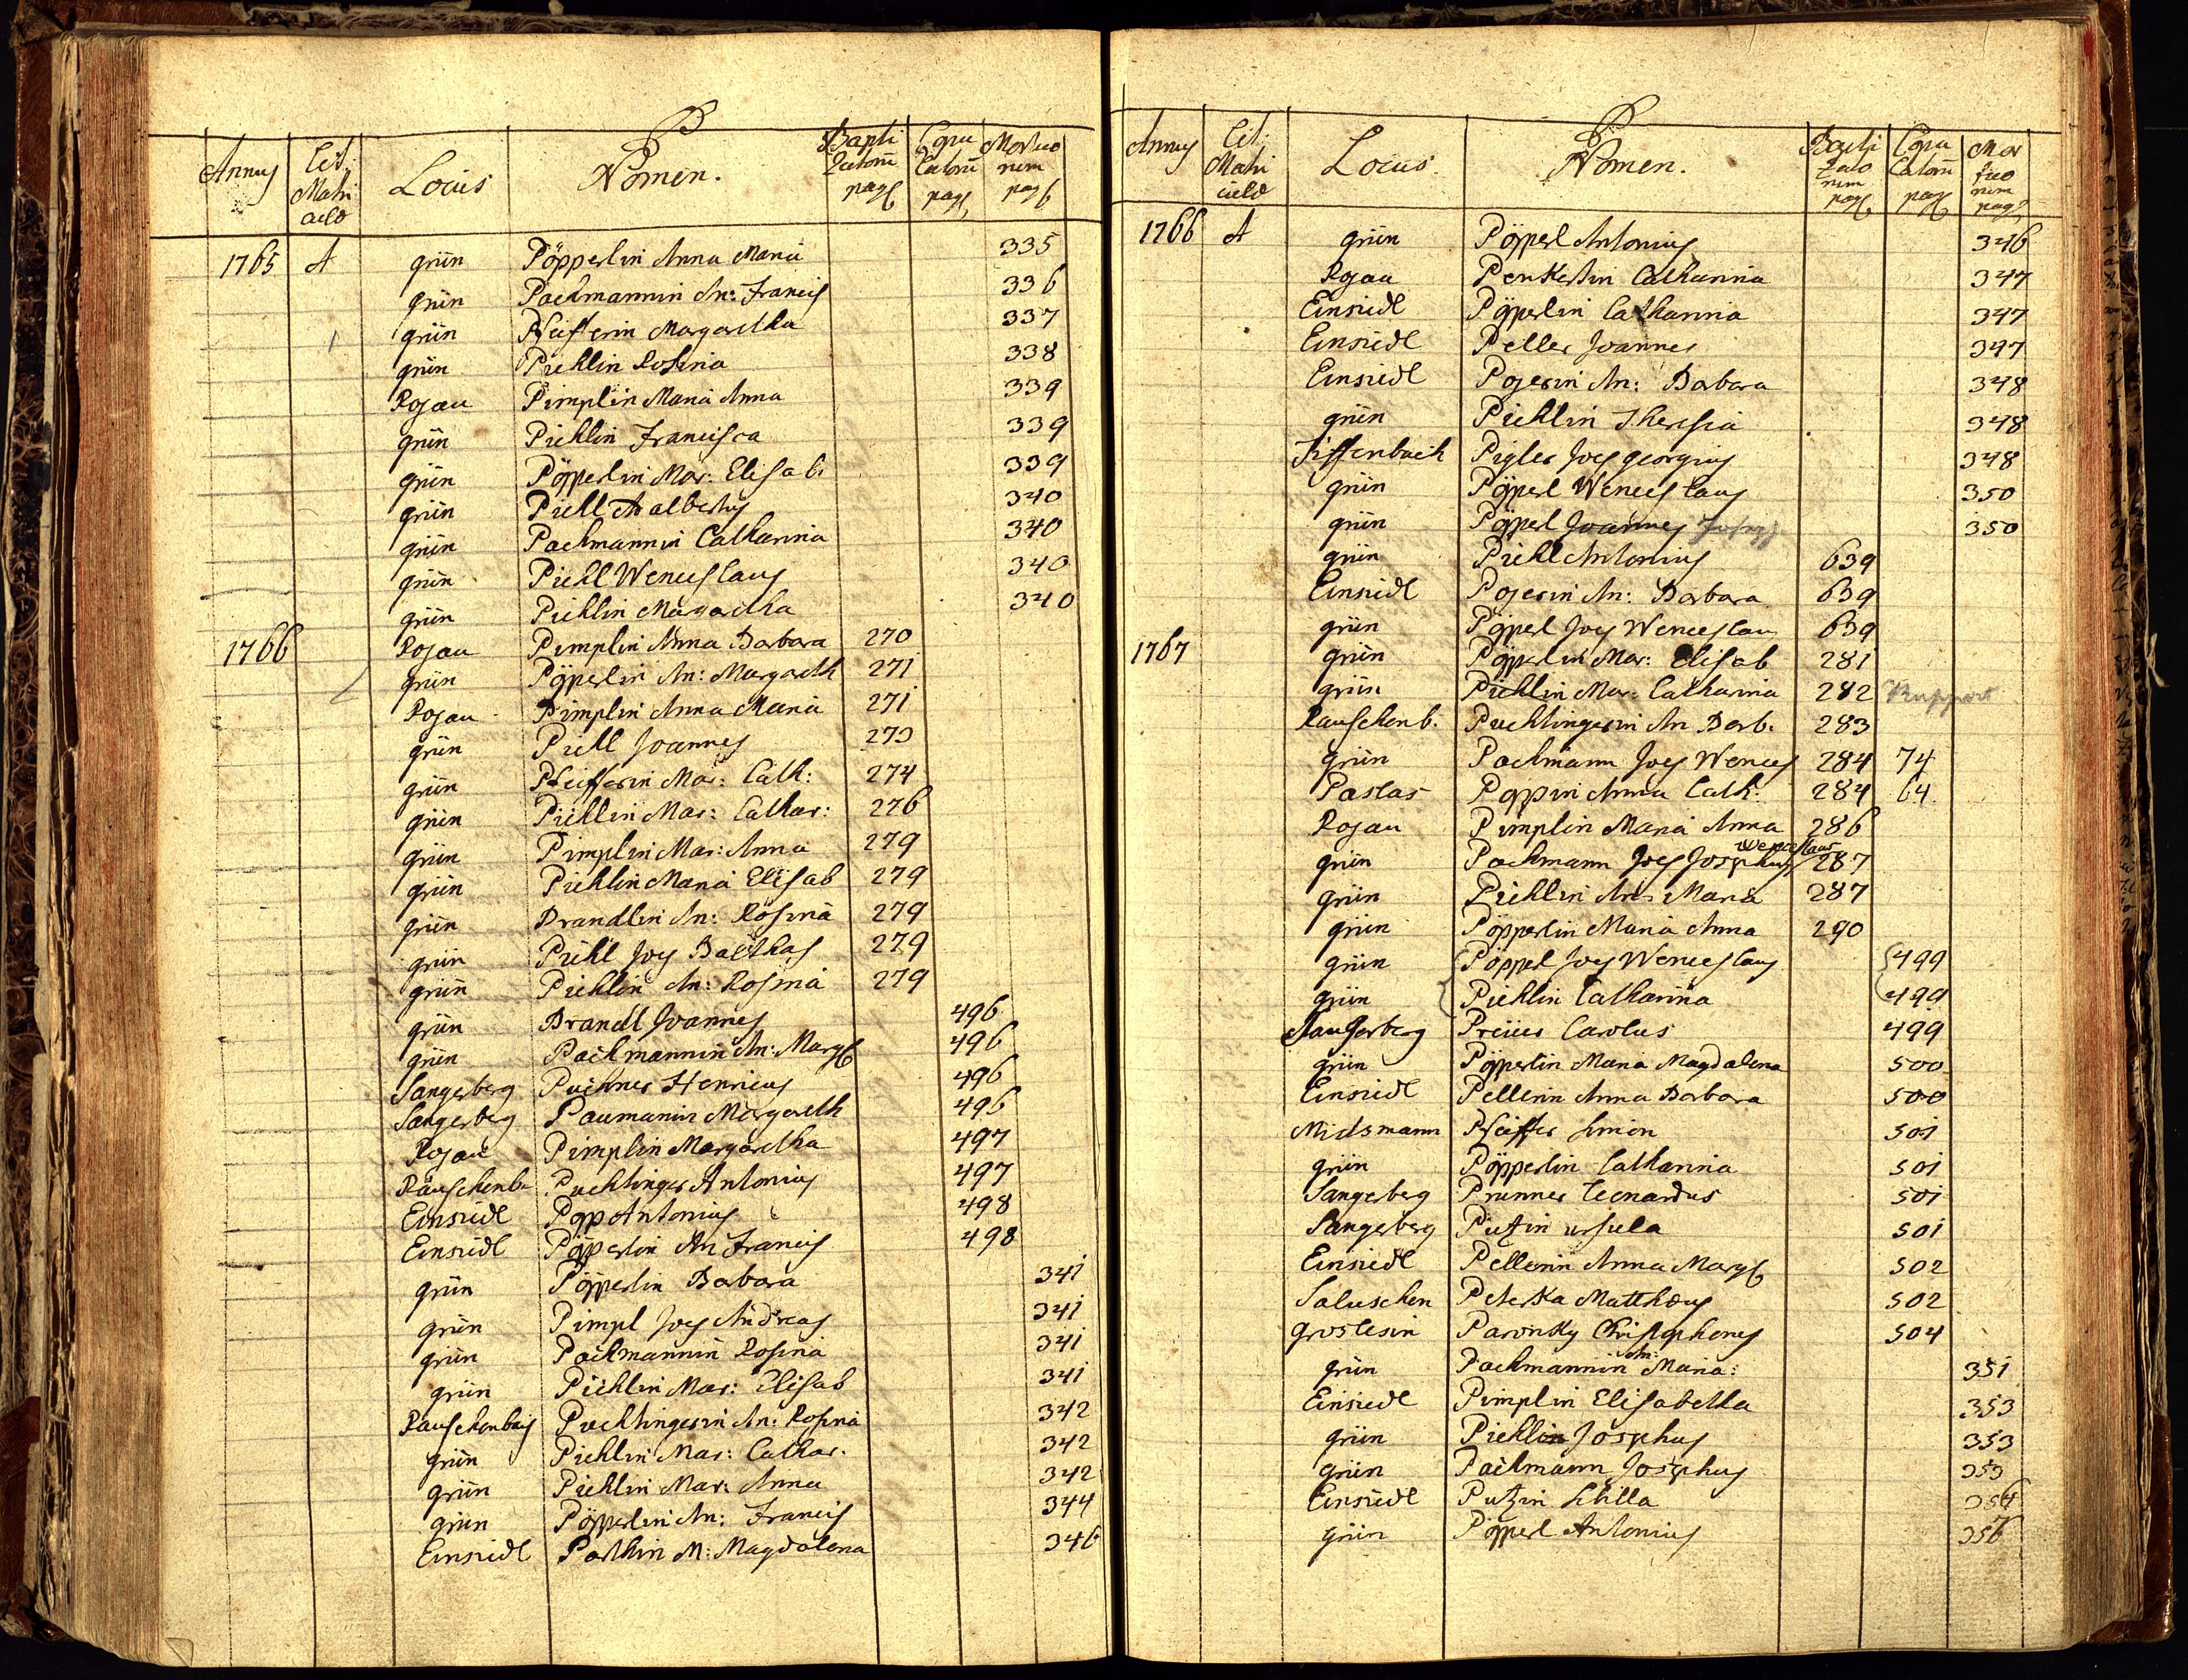 P
Annus Lit: Matri culæ Locus Nomen. Bapti zatorū pag. Copu latorū pag. Mortuo rum pag.
1765 A grün Pöpperlin Anna Maria 335
grün Pachmannin An: Francis 336
grün Pfeifferin Margaretha 337
grün Piehlin Rosina 338
Rojau Pimplin Maria Anna 339
grün Piehlin Francisca 339
grün Pöpperlin Mar: Elisab: 339
grün Piehl Adalbertus 340
grün Pachmannin Catharina 340
grün Piehl Wenceslaus 340
grün Piehlin Margaretha 340
1766 Rojau Pimplin Anna Barbara 270
grün Pöpperlin An: Margareth 271
Rojau Pimplin Anna Maria 271
grün Piehl Joannes 273
grün Pfeifferin Mar: Cath: 274
grün Piehlin Mar: Cathar: 276
grün Pimplin Mar: Anna 279
grün Piehlin Maria Elisab 279
grün Prandlin An: Rosina 279
grün Piehl Joes Balthas 279
grün Piehlin An: Rosina 279
grün Brandl Joannes 496
grün Pachmannin An: Marg 496
Sangerberg Puchner Henricus 496
Sangerberg Paumanin Margareth 496
Rojau Pimplin Margaretha 497
Rauschenb. Puchtinger Antonius 497
Einsiedl Popp Antonius 498
Einsiedl Pöpperlin An Francis 498
grün Pöpperlin Barbara 341
grün Pimpl Joes Andreas 341
grün Pachmannin Rosina 341
grün Piehlin Mar: Elisab 341
Rauschenbaj Puchtingerin An: Rosina 342
grün Piehlin Mar: Cathar. 342
grün Piehlin Mar: Anna 342
grün Pöpperlin An: Francis 344
Einsiedl M: Magdalena 346
P
Annus Lit: Matri culæ Locus. Nomen. Bapti zato rum pag. Copu latorū pag. Mor tuo rum pag.
1766 A grün Pöpperl Antonius 346
Rojau Catharina 347
Einsiedl Pöpperlin Catharina 347
Einsiedl Peller Joannes 347
Einsiedl Pojerin An: Barbara 348
grün Piehlin Theresia 348
Tiffenbach Pigler Joes georgius 348
grün Pöpperl Wenceslaus 350
grün Pöpperl Joannes Joseph 350
grün Piehl Antonius 639
Einsiedl Pojerin An: Barbara 639
grün Pöpperl Joes Wenceslau 639
1767 grün Pöpperlin Mar: Elisab 281
grün Piehlin Mar: Catharina 282 Ruppert
Rauschenb. Puchtingerin An Barb. 283
grün Pachmann Joes Wences 284 74
Paslas Poppin Anna Cath: 284 64
Rojau Pimplin Maria Anna 286
grün Pachmann Joes Josephus Wenceslaus 287
grün Piehlin An: Maria 287
grün Pöpperlin Maria Anna 290
grün Pöpperl Joes Wenceslaus 499
grün Piehlin Catharina 499
Sangerberg Preises Carolus 499
grün Pöpperlin Maria Magdalena 500
Einsiedl Pellerin Anna Barbara 500
Midsmann Pfeiffer Simon 501
grün Pöpperlin Catharina 501
Sangeberg Prunner Leonardus 501
Sangerberg Putzin ursula 501
Einsiedl Pellerin Anna Marg 502
Saluschen Peterka Matthæus 502
groslesin Paronsky Christophorus 504
grün Pachmannin An: Maria: 351
Einsiedl Pimplin Elisabetha 353
grün Piehlin Josephus 353
grün Pachmann Josephus 353
Einsiedl Putzin 354
grün Pöpperl Antonius 356